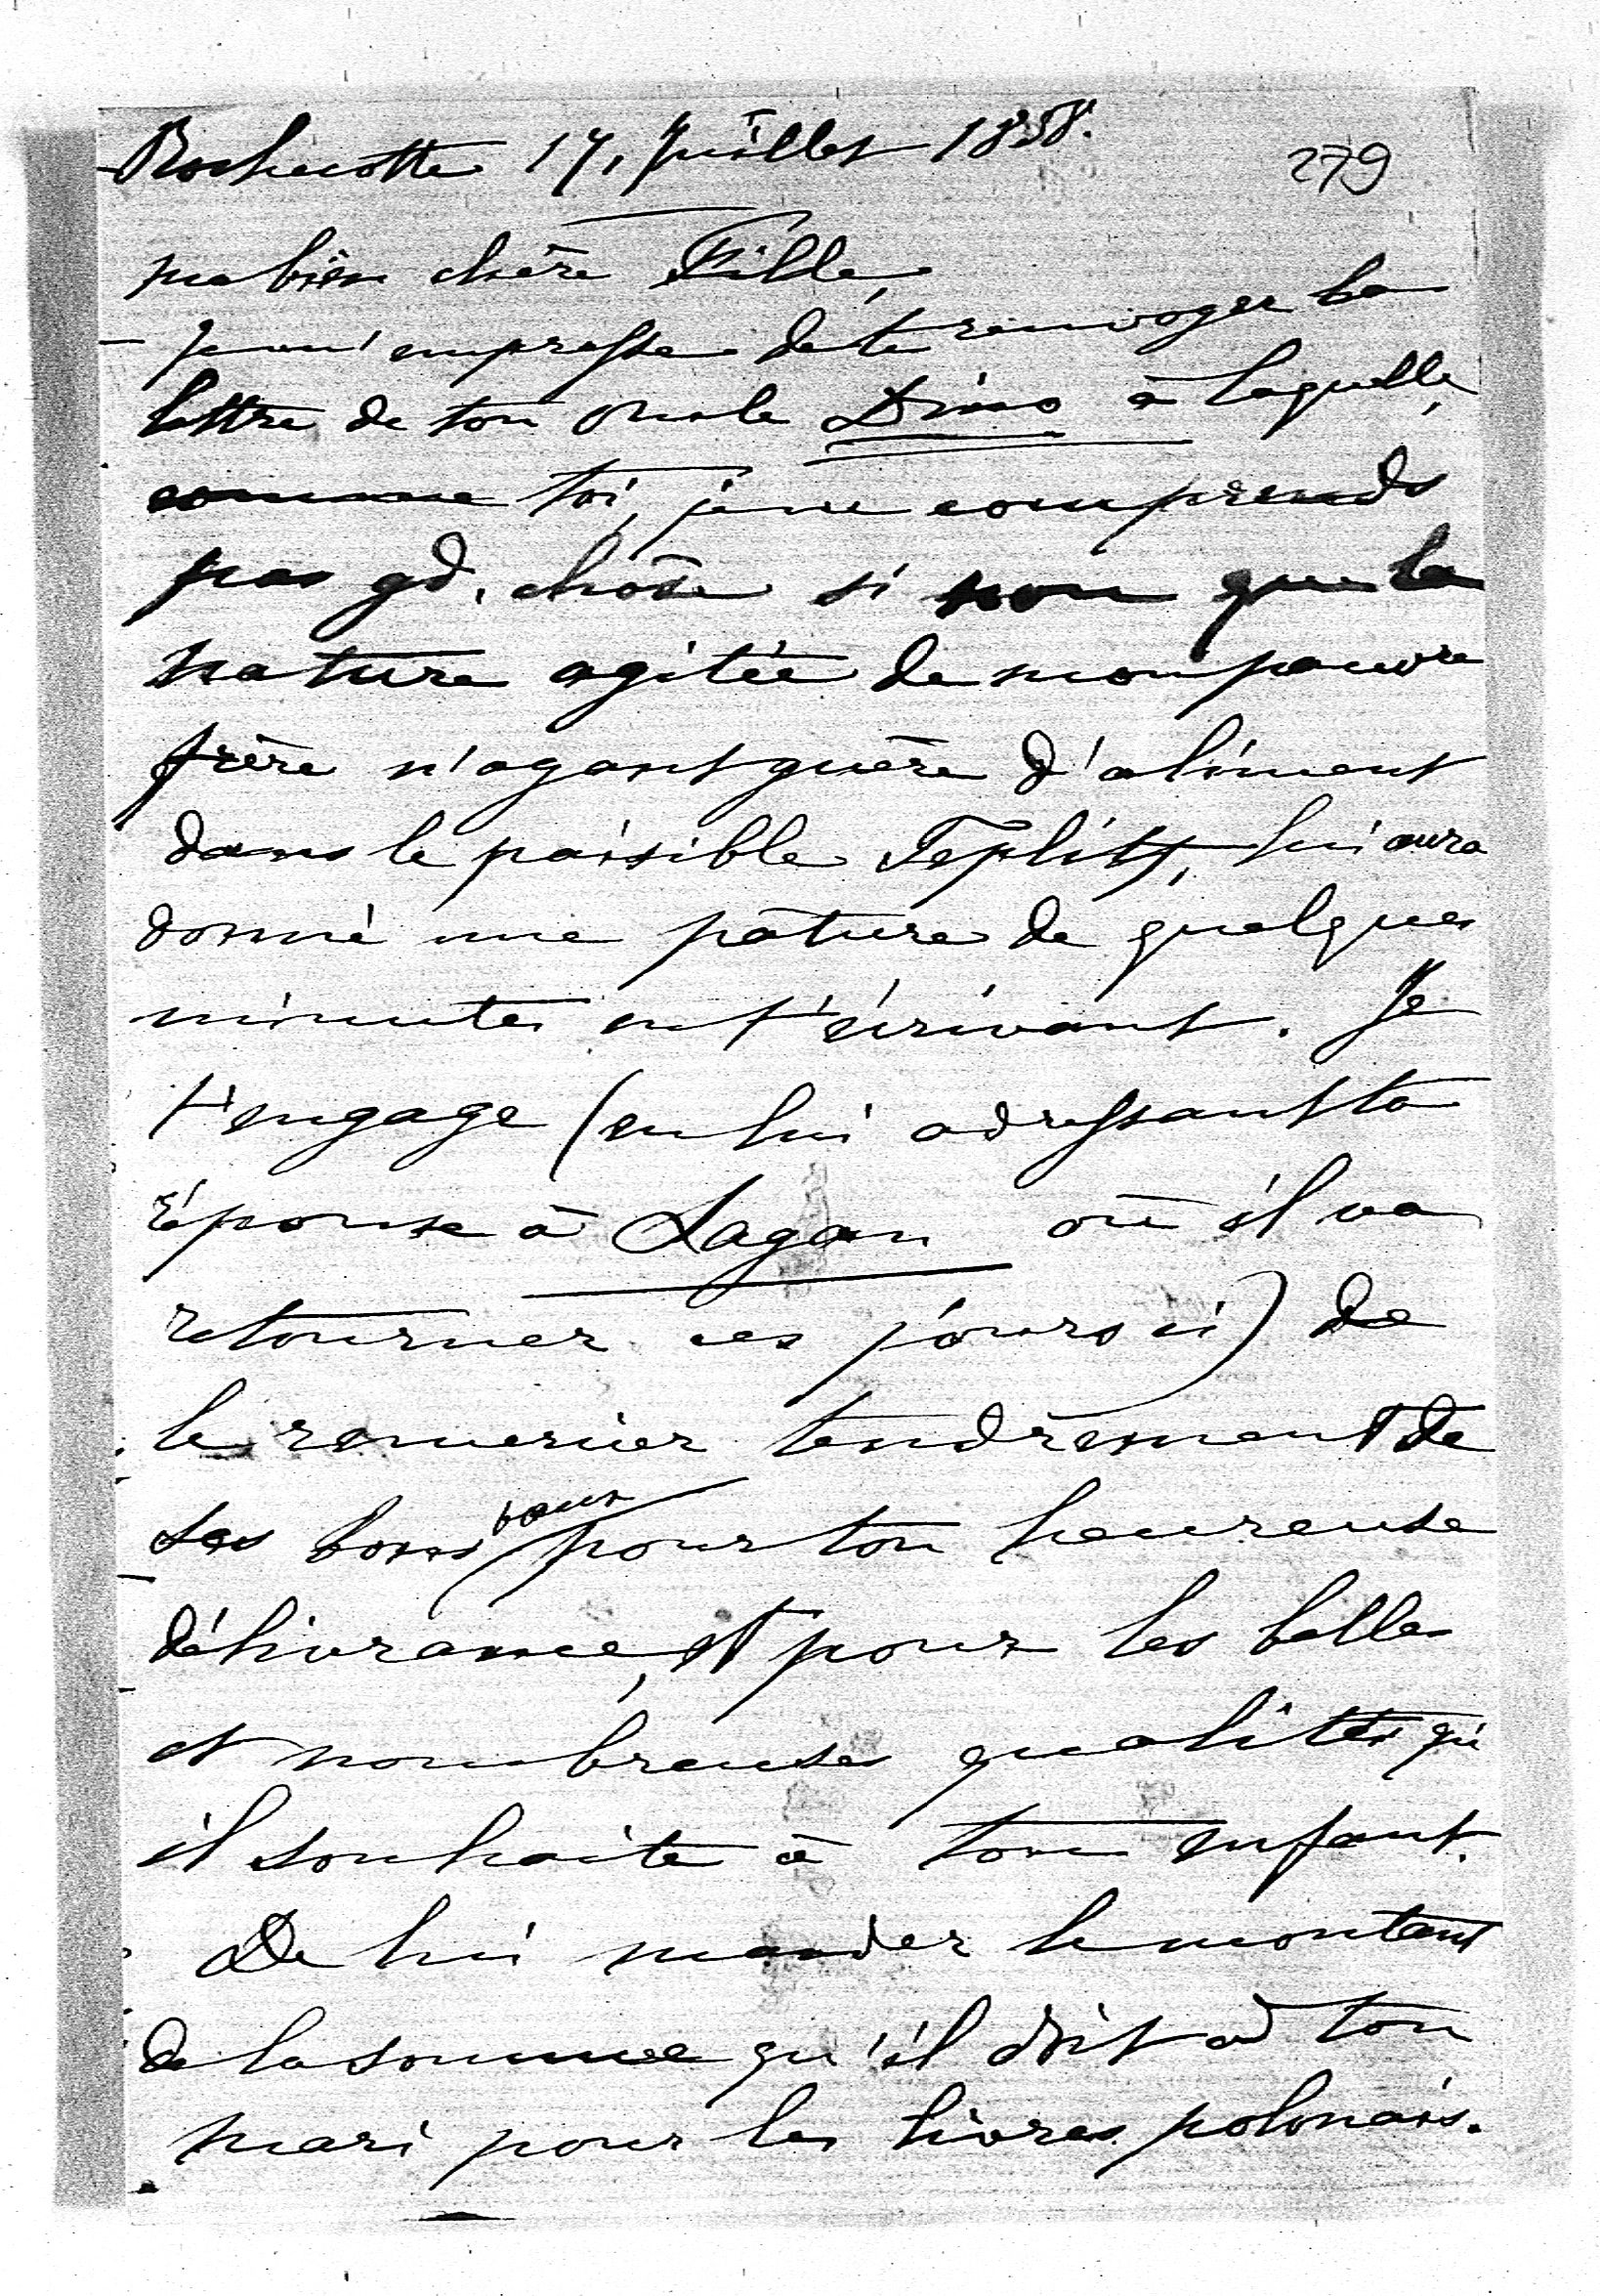 Rochecotte 17, Juillet 1858.
279
ma bien chère Fille,
Je m'empresse de te renvoyer la
lettre de ton Oncle Dino à laquelle,
comme toi, je ne comprends
pas gd. chose si non que la
nature agitée de mon pauvre
frère n'ayant guère d'aliment
dans le paisible Teplitz, lui aura
donné une pâture de quelques
minutes en t'écrivant. Je
t'engage (en lui adressant ta
réponse à Sagan où il va
retourner ces jours ci) de
le remercier tendrement de
ses bons vœux pour ton heureuse
délivrance, et pour les belles
et nombreuses qualités qu'
il souhaite à ton enfant.
De lui mander le montant
de la somme qu'il doit à ton
mari pour les livres polonais.